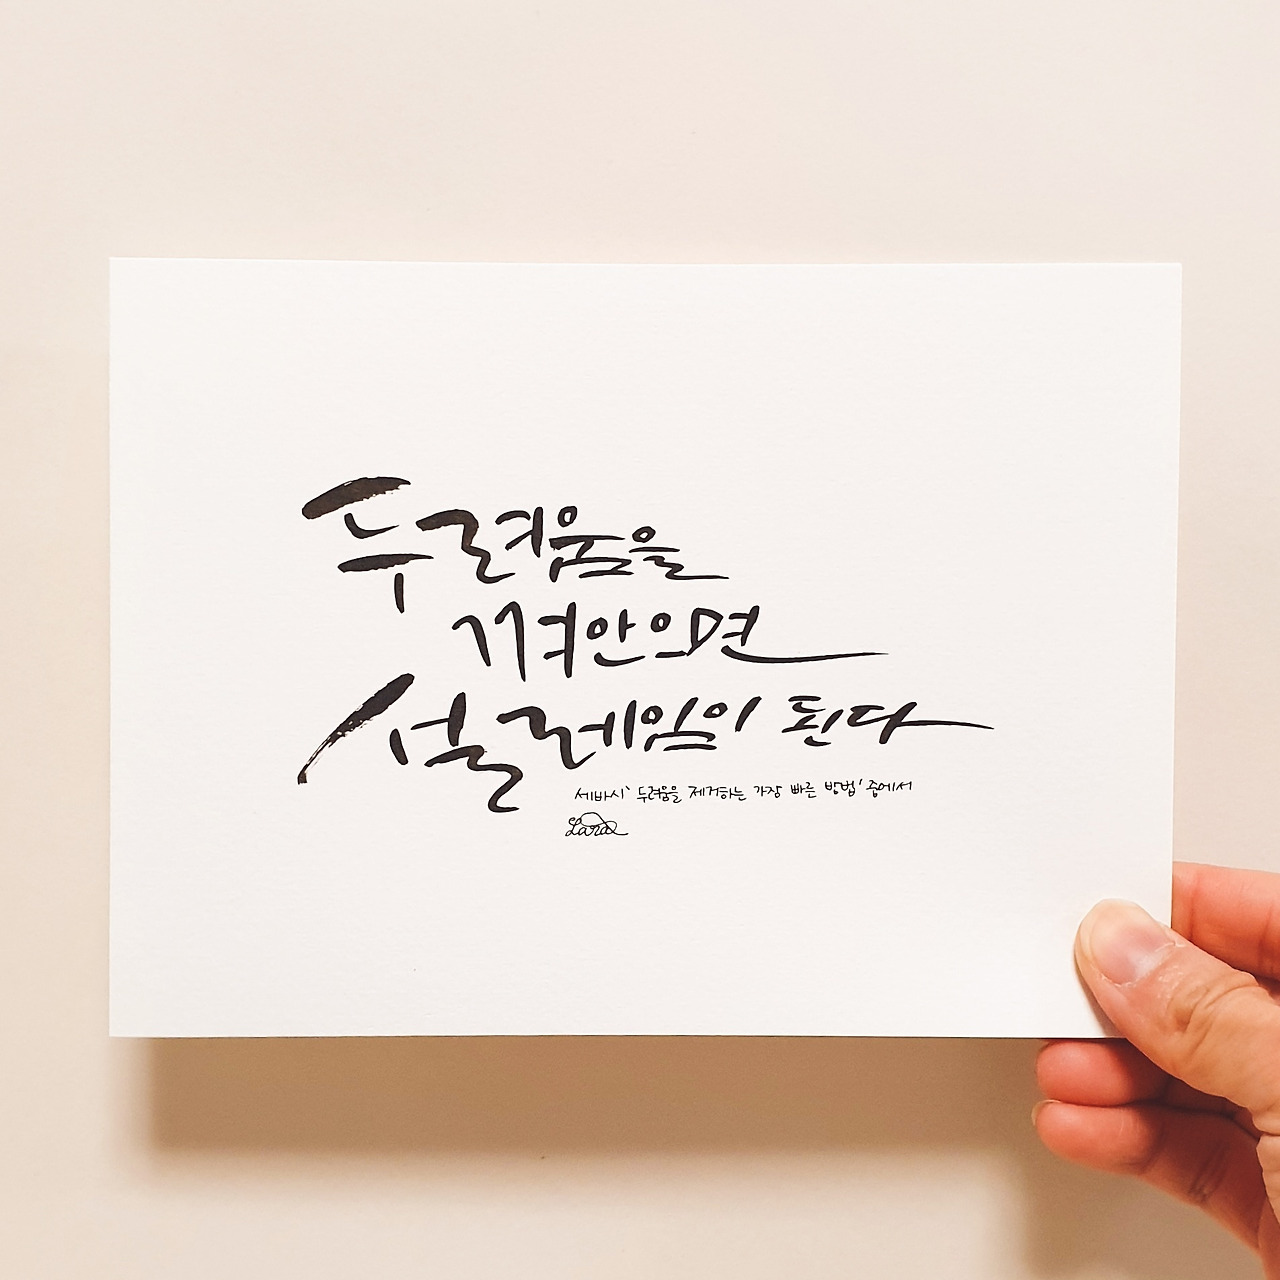 두려움을
껴안으면
설레임이 된다
세바시 '두려움을 제거하는 가장 빠른 방법' 중에서
Lara